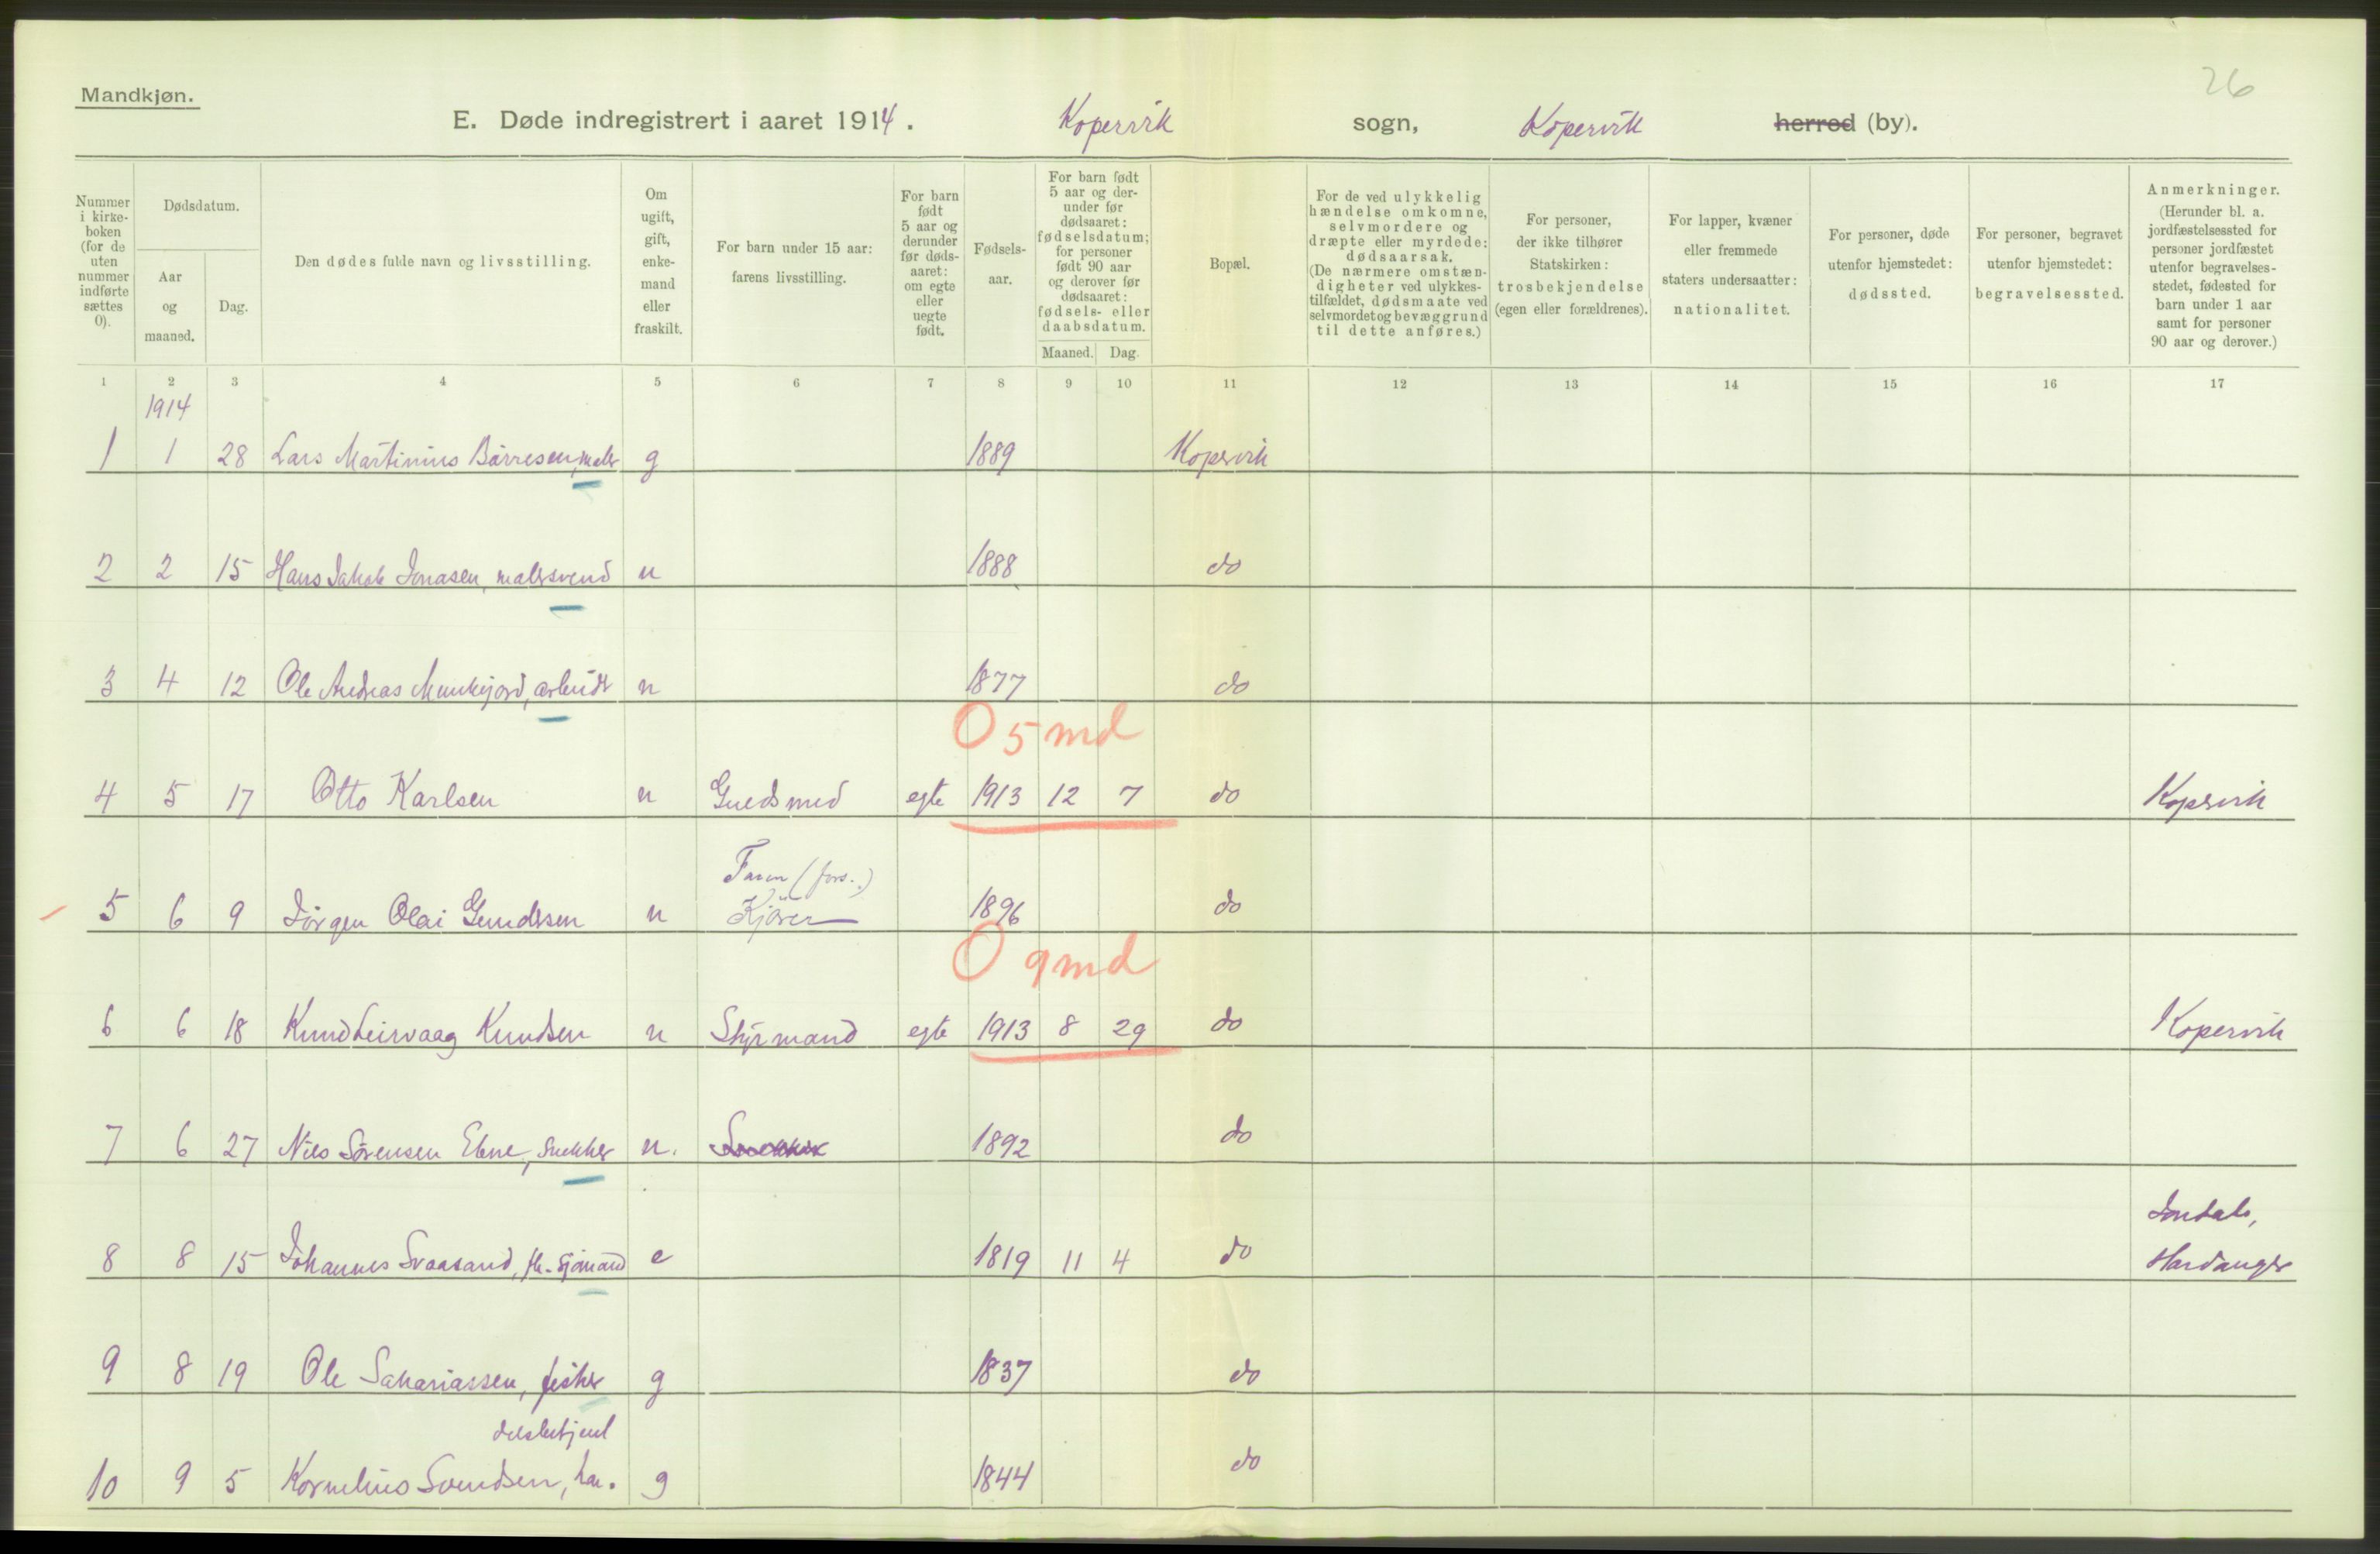 26
Mandkjøn.
E. Døde indregistrert i aaret 1914. Kopervik sogn, Kopervik herred (by).
Nummer i kirke-boken (for de uten nummer indførte sættes 0).
Dødsdatum.
Aar og maaned.
Dag.
Den dødes fulde navn og livsstilling.
Om ugift, gift, enke-mand eller fraskilt.
For barn under 15 aar: farens livsstilling.
For barn født 5 aar og derunder før døds-aaret: om egte eller uegte født.
Fødsels-aar.
For barn født 5 aar og der-under før dødsaaret: fødselsdatum; for personer født 90 aar og derover før dødsaaret: fødsels- eller daabsdatum.
Maaned. Dag.
Bopæl.
For de ved ulykkelig hændelse omkomne, selvmordere og dræpte eller myrdede: dødsaarsak. (De nærmere omstæn-digheter ved ulykkes-tilfældet, dødsmaate ved selvmordet og bevæggrund til dette anføres.)
For personer, der ikke tilhører Statskirken: trosbekjendelse (egen eller forældrenes).
For lapper, kvæner eller fremmede staters undersaatter: nationalitet.
For personer, døde utenfor hjemstedet: dødssted.
For personer, begravet utenfor hjemstedet: begravelsessted.
Anmerkninger. (Herunder bl. a. jordfæstelsessted for personer jordfæstet utenfor begravelses-stedet, fødested for barn under 1 aar samt for personer 90 aar og derover.)
1 2 3 4 5 6 7 8 9 10 11 12 13 14 15 16 17
1914
1 1 28 Lars Martinius Børresen, maler g 1889 Kopervik
2 2 15 Hans Jakob Jonasen, malersvend u 1888 do
3 4 12 Ole Andreas Munkejord, arbeidr u 1877 do
0 5 md
4 5 17 Otto Karlsen u Guldsmed egte 1913 12 7 do Kopervik
Faren (fors.)
5 6 9 Jörgen Olai Gundersen u Kjörer 1896 do
0 9 md
6 6 18 Knud Leirvaag Knudsen u Styrmand egte 1913 8 29 do Kopervik
7 6 27 Nils Sörensen Ebne, Snekker u. 1892 do
Jondal,
8 8 15 Johannes Svaasand, fh. sjömand e 1819 11 4 do Hardanger
9 8 19 Ole Sakariassen, fisker g 1837 do
delsbetjent
10 9 5 Kornelius Svendsen, han. g 1844 do